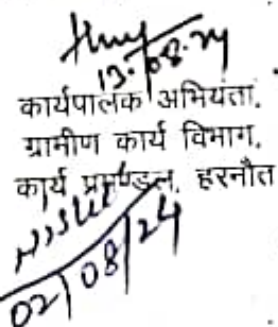 13.08.24
कार्यपालक अभियंता.
ग्रामीण कार्य विभाग.
कार्य प्रमण्डल, हरनौत
02/08/24